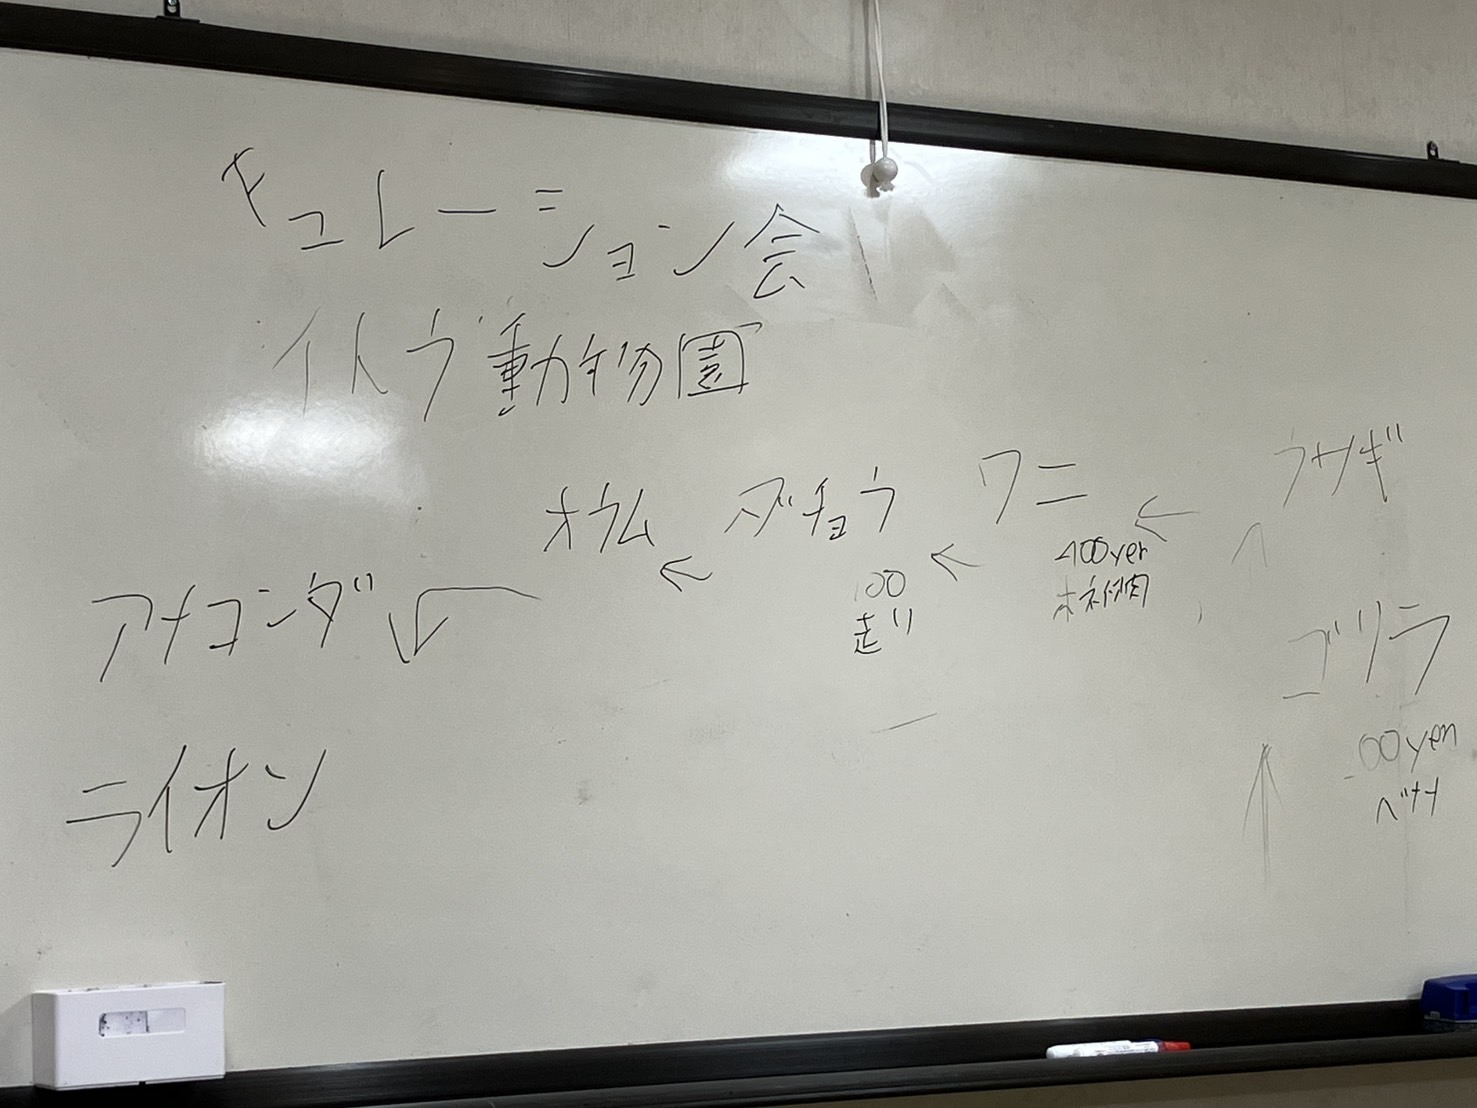 キュレーション会
イトウ動物園
ウサギ
ワニ
ダチョウ
オウム
400yen
100
走り
アナコンダ
ゴリラ
00yen
バナナ
ライオン